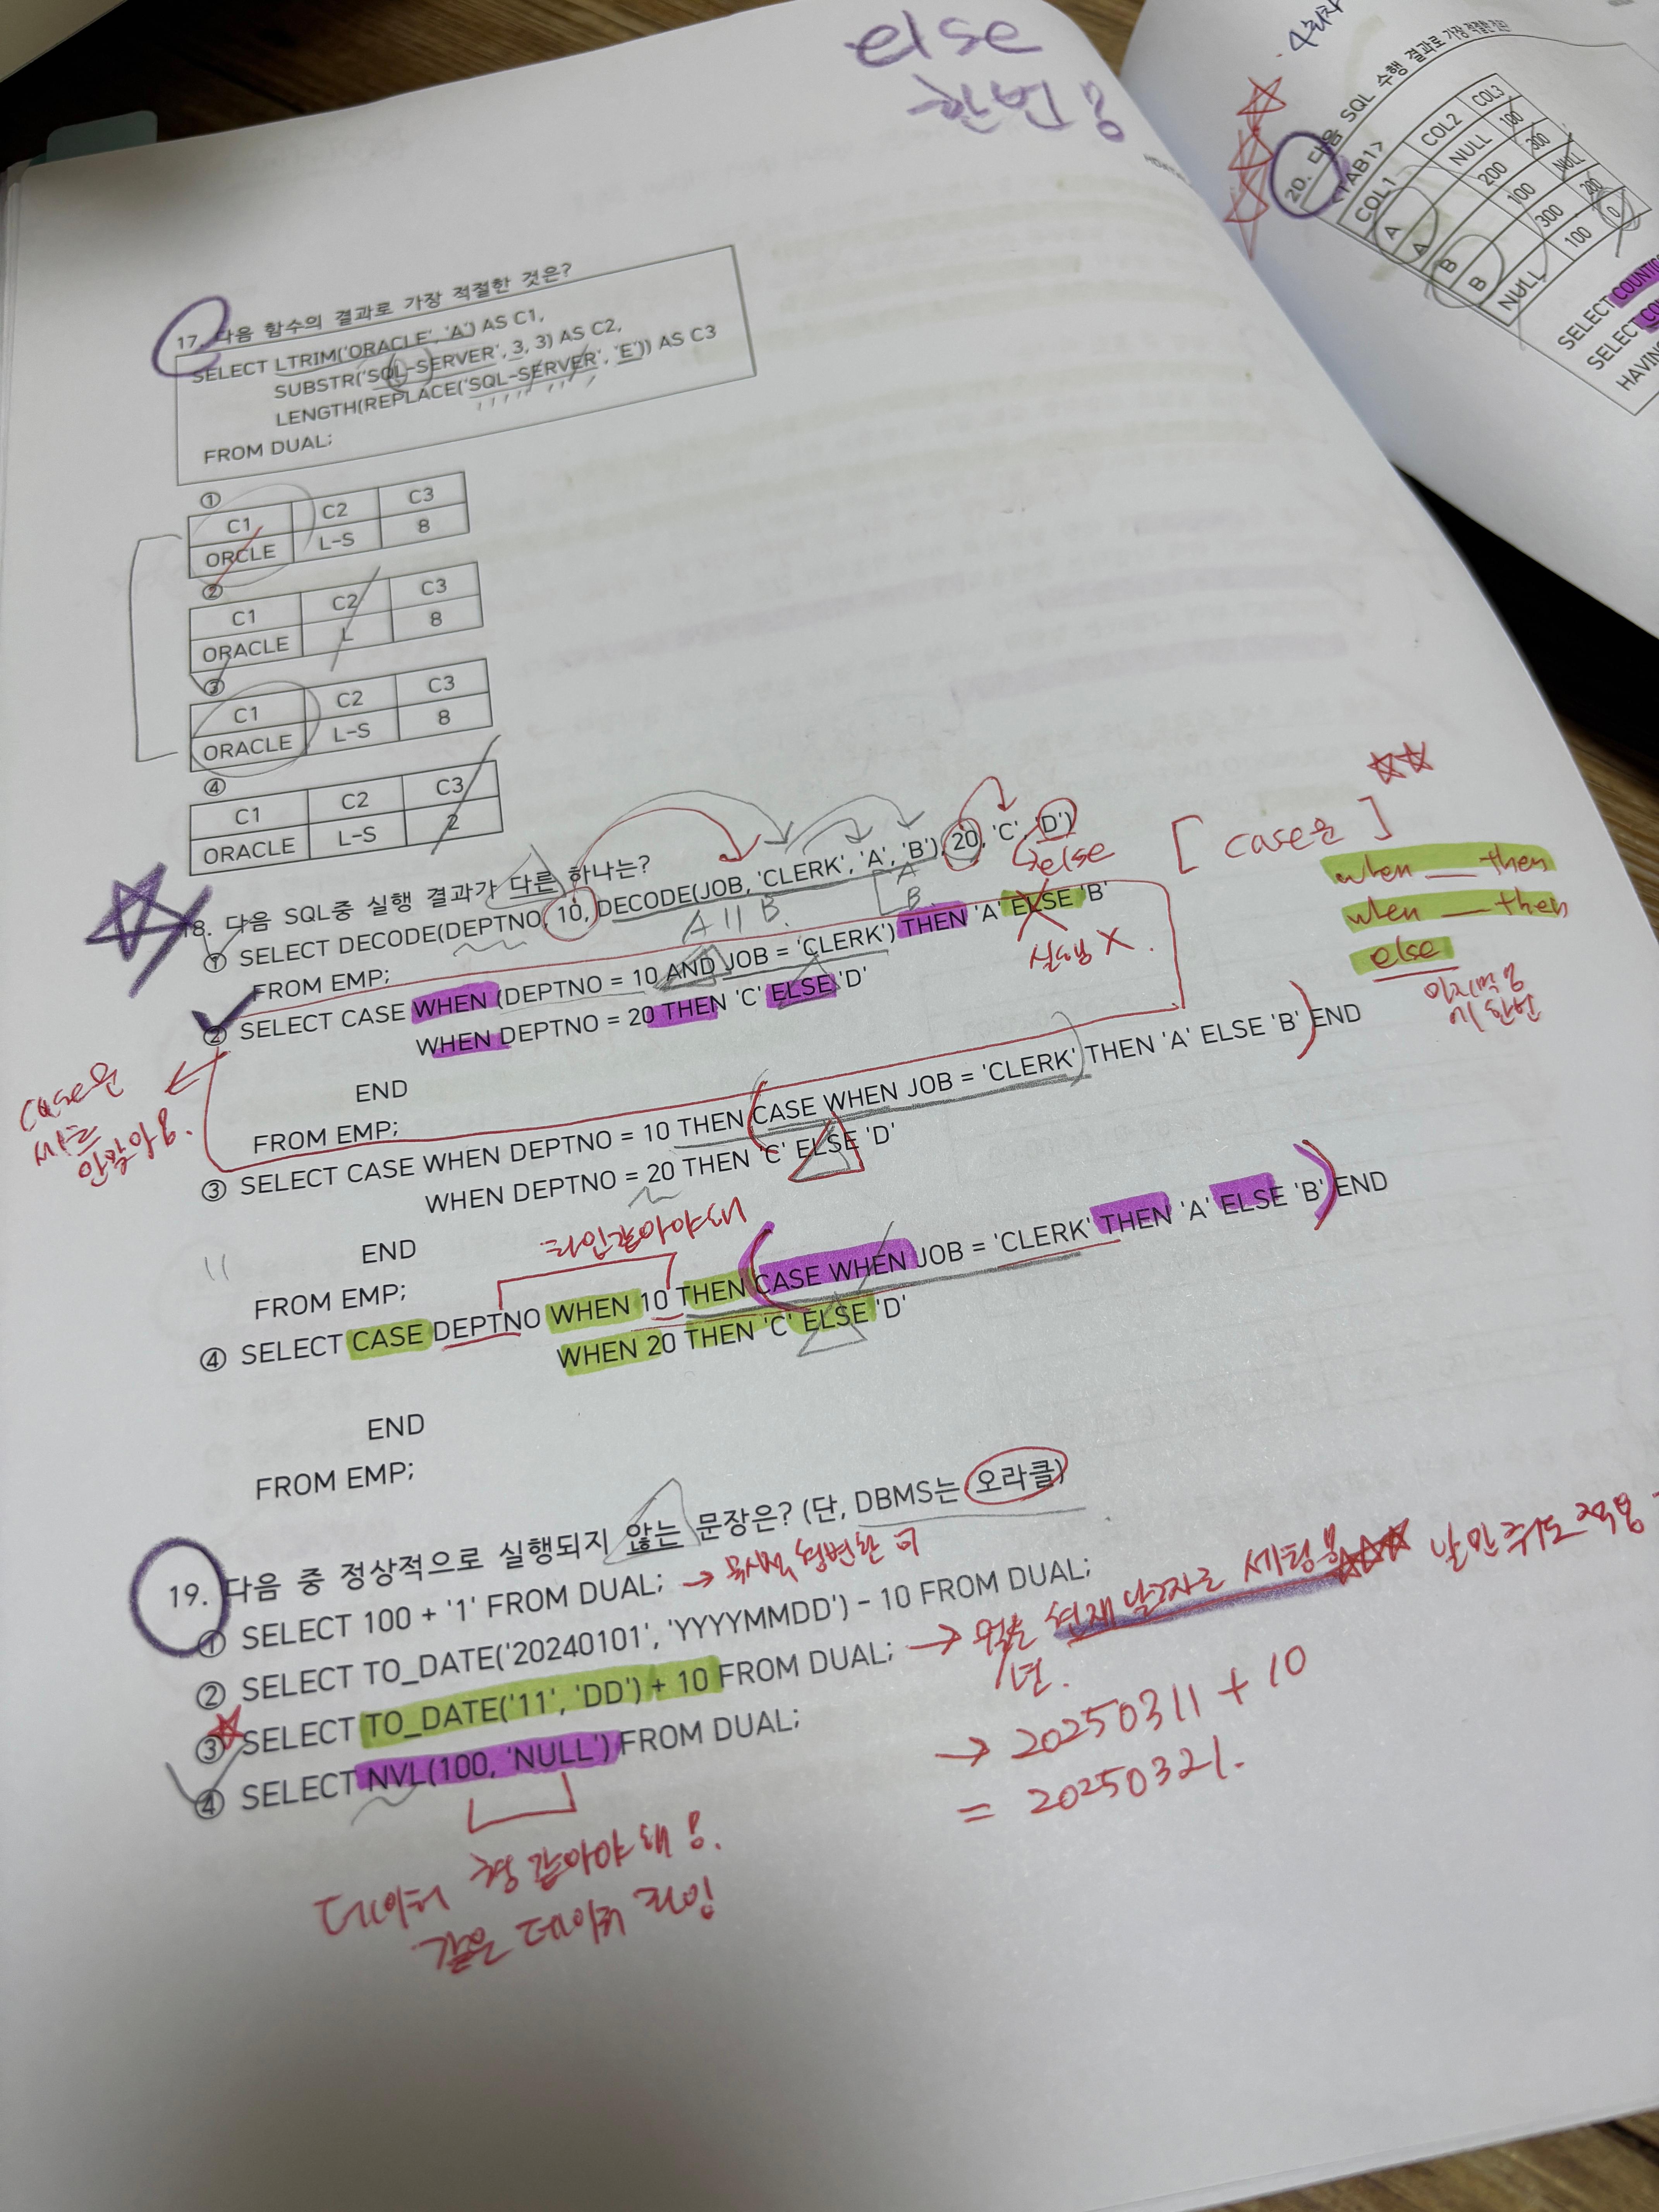 else
한번!
17. 다음 함수의 결과로 가장 적절한 것은?
SELECT LTRIM('ORACLE', 'A') AS C1,
SUBSTR('SQL-SERVER', 3, 3) AS C2,
LENGTH(REPLACE('SQL-SERVER', 'E')) AS C3
FROM DUAL;
①
C1 C2 C3
ORCLE L-S 8
②
C1 C2 C3
ORACLE L 8
③
C1 C2 C3
ORACLE L-S 8
④
C1 C2 C3
ORACLE L-S 2
18. 다음 SQL중 실행 결과가 다른 하나는?
① SELECT DECODE(DEPTNO, 10, DECODE(JOB, 'CLERK', 'A', 'B'), 20, 'C', 'D')
else
A || B.
A
B
FROM EMP;
② SELECT CASE WHEN (DEPTNO = 10 AND JOB = 'CLERK') THEN 'A' ELSE 'B'
실행 X.
WHEN DEPTNO = 20 THEN 'C' ELSE 'D'
END
FROM EMP;
③ SELECT CASE WHEN DEPTNO = 10 THEN CASE WHEN JOB = 'CLERK' THEN 'A' ELSE 'B' END
WHEN DEPTNO = 20 THEN 'C' ELSE 'D'
END
FROM EMP;
타입같아야해
④ SELECT CASE DEPTNO WHEN 10 THEN CASE WHEN JOB = 'CLERK' THEN 'A' ELSE 'B' END
WHEN 20 THEN 'C' ELSE 'D'
END
FROM EMP;
[ case문 ]
when then
when then
else
case문
19. 다음 중 정상적으로 실행되지 않는 문장은? (단, DBMS는 오라클)
① SELECT 100 + '1' FROM DUAL; → 묵시적 형변환
② SELECT TO_DATE('20240101', 'YYYYMMDD') - 10 FROM DUAL;
③ SELECT TO_DATE('11', 'DD') + 10 FROM DUAL; → 현재 날짜로 세팅
년.
→ 20250311 + 10
= 20250321.
④ SELECT NVL(100, 'NULL') FROM DUAL;
데이터 형 같아야 해!
같은 데이터 타입
4회차
20. 다음 SQL 수행 결과로 가장 적절한 것은
<TAB1>
COL1 COL2 COL3
A NULL 100
A 200 300
B 100 NULL
B 300 200
NULL 100 0
SELECT
SELECT